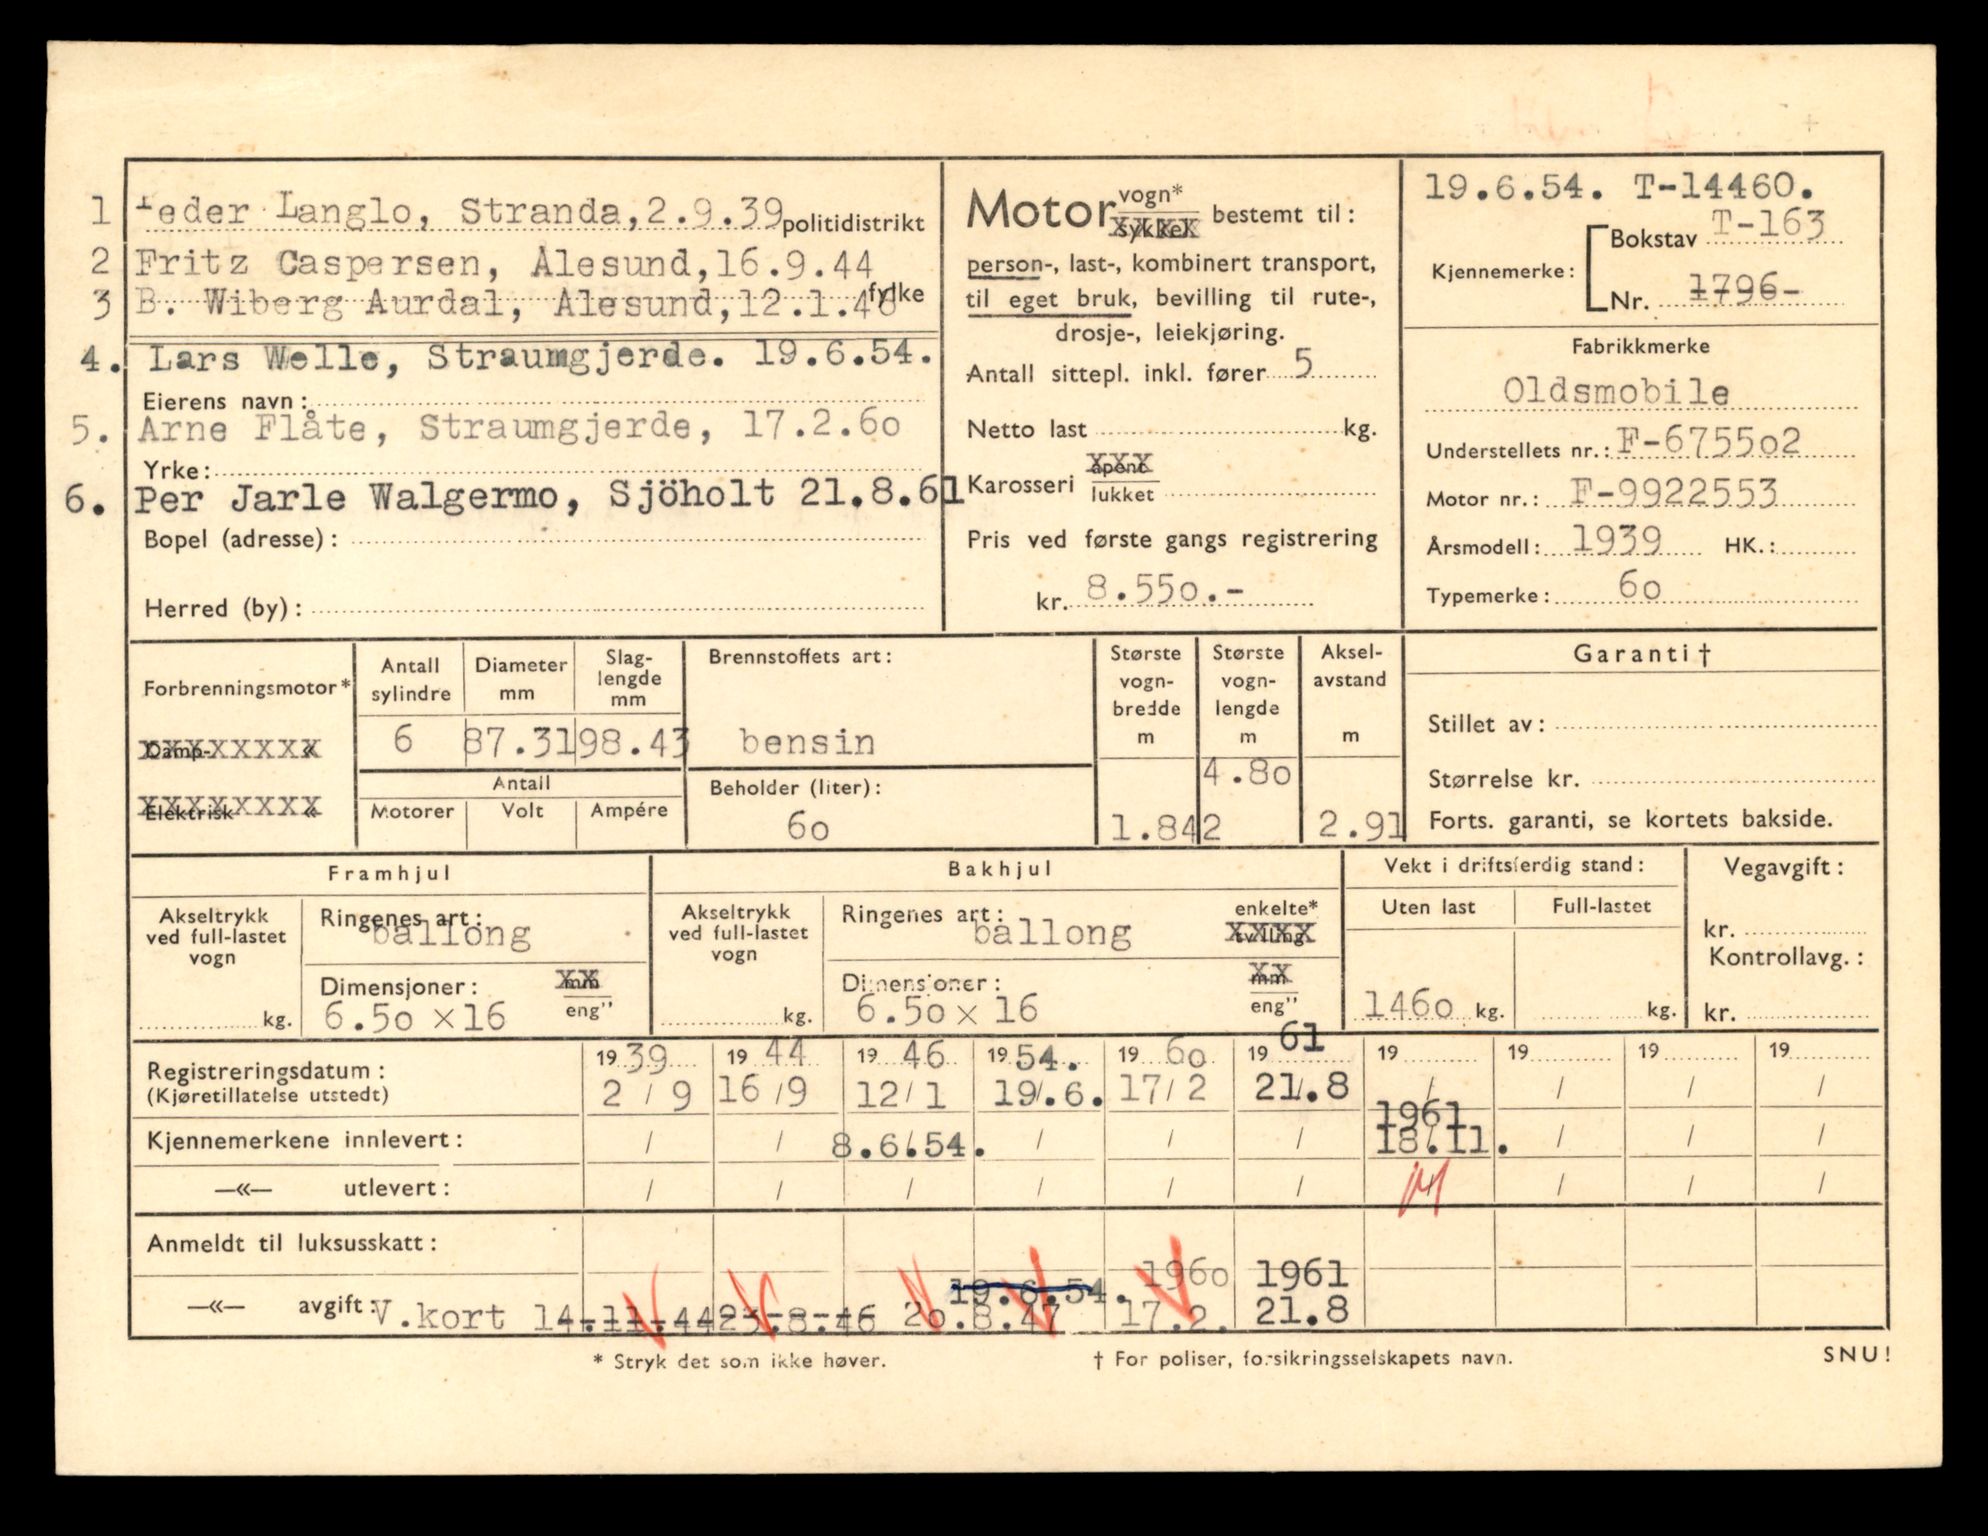 1 Peder Langlo, Stranda, 2.9.39 politidistrikt
2 Fritz Caspersen, Alesund, 16.9.44
3 B. Wiberg Aurdal, Alesund, 12.1.46 fylke
4. Lars Welle, Straumgjerde. 19.6.54.
Eierens navn:
5. Arne Flåte, Straumgjerde, 17.2.60
Yrke:
6. Per Jarle Walgermo, Sjöholt 21.8.61
Bopel (adresse):
Herred (by):
Motor vogn* / sykkel bestemt til:
person-, last-, kombinert transport,
til eget bruk, bevilling til rute-,
drosje-, leiekjøring.
Antall sittepl. inkl. fører 5
Netto last kg.
Karosseri åpent / lukket
Pris ved første gangs registrering
kr. 8.550.-
19.6.54. T-14460.
Kjennemerke: Bokstav T-163
Nr. 1796-
Fabrikkmerke
Oldsmobile
Understellets nr.: F-675502
Motor nr.: F-9922553
Årsmodell: 1939 HK.:
Typemerke: 60
Forbrenningsmotor*
Damp- «
Elektrisk «
Antall sylindre 6
Diameter mm 87.31
Slag-lengde mm 98.43
Antall
Motorer Volt Ampére
Brennstoffets art:
bensin
Beholder (liter):
60
Største vogn-bredde m 1.842
Største vogn-lengde m 4.80
Aksel-avstand m 2.91
Garanti †
Stillet av:
Størrelse kr.
Forts. garanti, se kortets bakside.
Framhjul
Akseltrykk ved full-lastet vogn kg.
Ringenes art: ballong
Dimensjoner: mm / eng”
6.50 x 16
Bakhjul
Akseltrykk ved full-lastet vogn kg.
Ringenes art: ballong enkelte* / tvilling
Dimensjoner: mm / eng”
6.50 x 16
Vekt i driftsferdig stand:
Uten last Full-lastet
1460 kg. kg.
Vegavgift:
kr.
Kontrollavg.:
kr.
Registreringsdatum: 19 39 19 44 19 46 19 54. 19 60 19 61 19 19 19 19
(Kjøretillatelse utstedt) 2 / 9 16 / 9 12 / 1 19/.6. 17 / 2 21/.8 / / / /
1961
Kjennemerkene innlevert: / / 8.6.54. / / / 18.11. / / /
—«— utlevert: / / / / / / / / /
Anmeldt til luksusskatt:
19.6.54. 1960 1961
—«— avgift: V.kort 14.11.44 23.8.46 20.8.47 17.2. 21.8
* Stryk det som ikke høver. † For poliser, forsikringsselskapets navn. SNU!